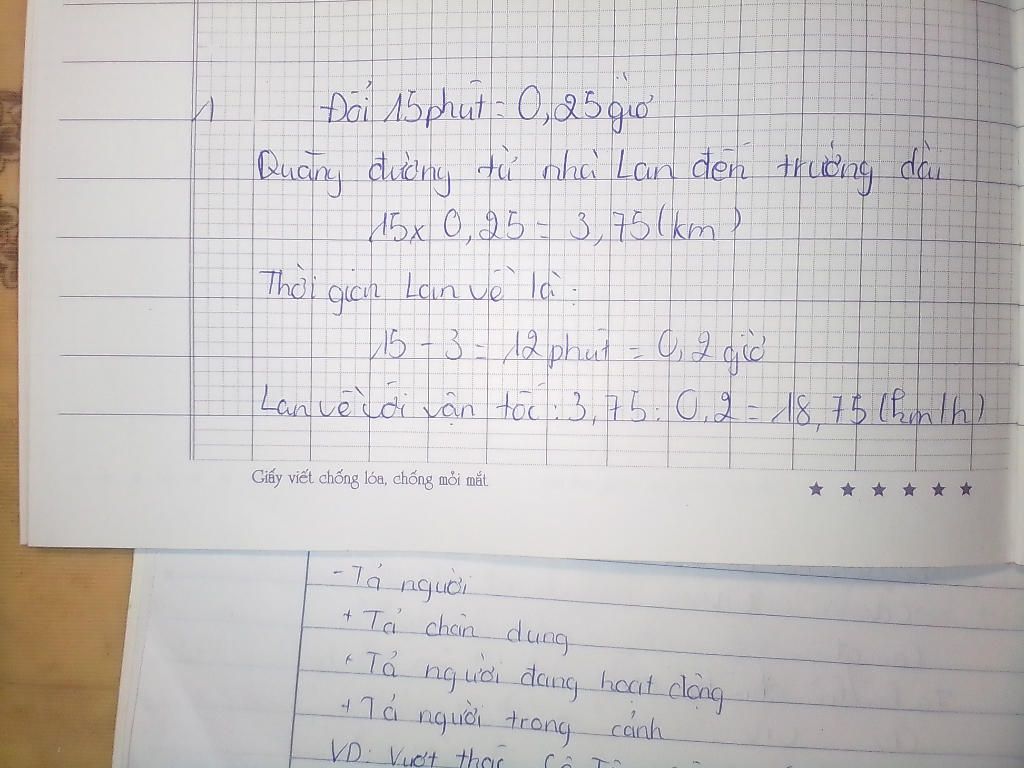 1 Đổi 15 phút = 0,25 giờ
Quãng đường từ nhà Lan đến trường dài
15 x 0,25 = 3,75 (km)
Thời gian Lan về là :
15 - 3 = 12 phút = 0,2 giờ
Lan về với vận tốc : 3,75 : 0,2 = 18,75 (km/h)
Giấy viết chống lóa, chống mỏi mắt
- Tả người
+ Tả chân dung
+ Tả người đang hoạt động
+ Tả người trong cảnh
VD: Vượt thác